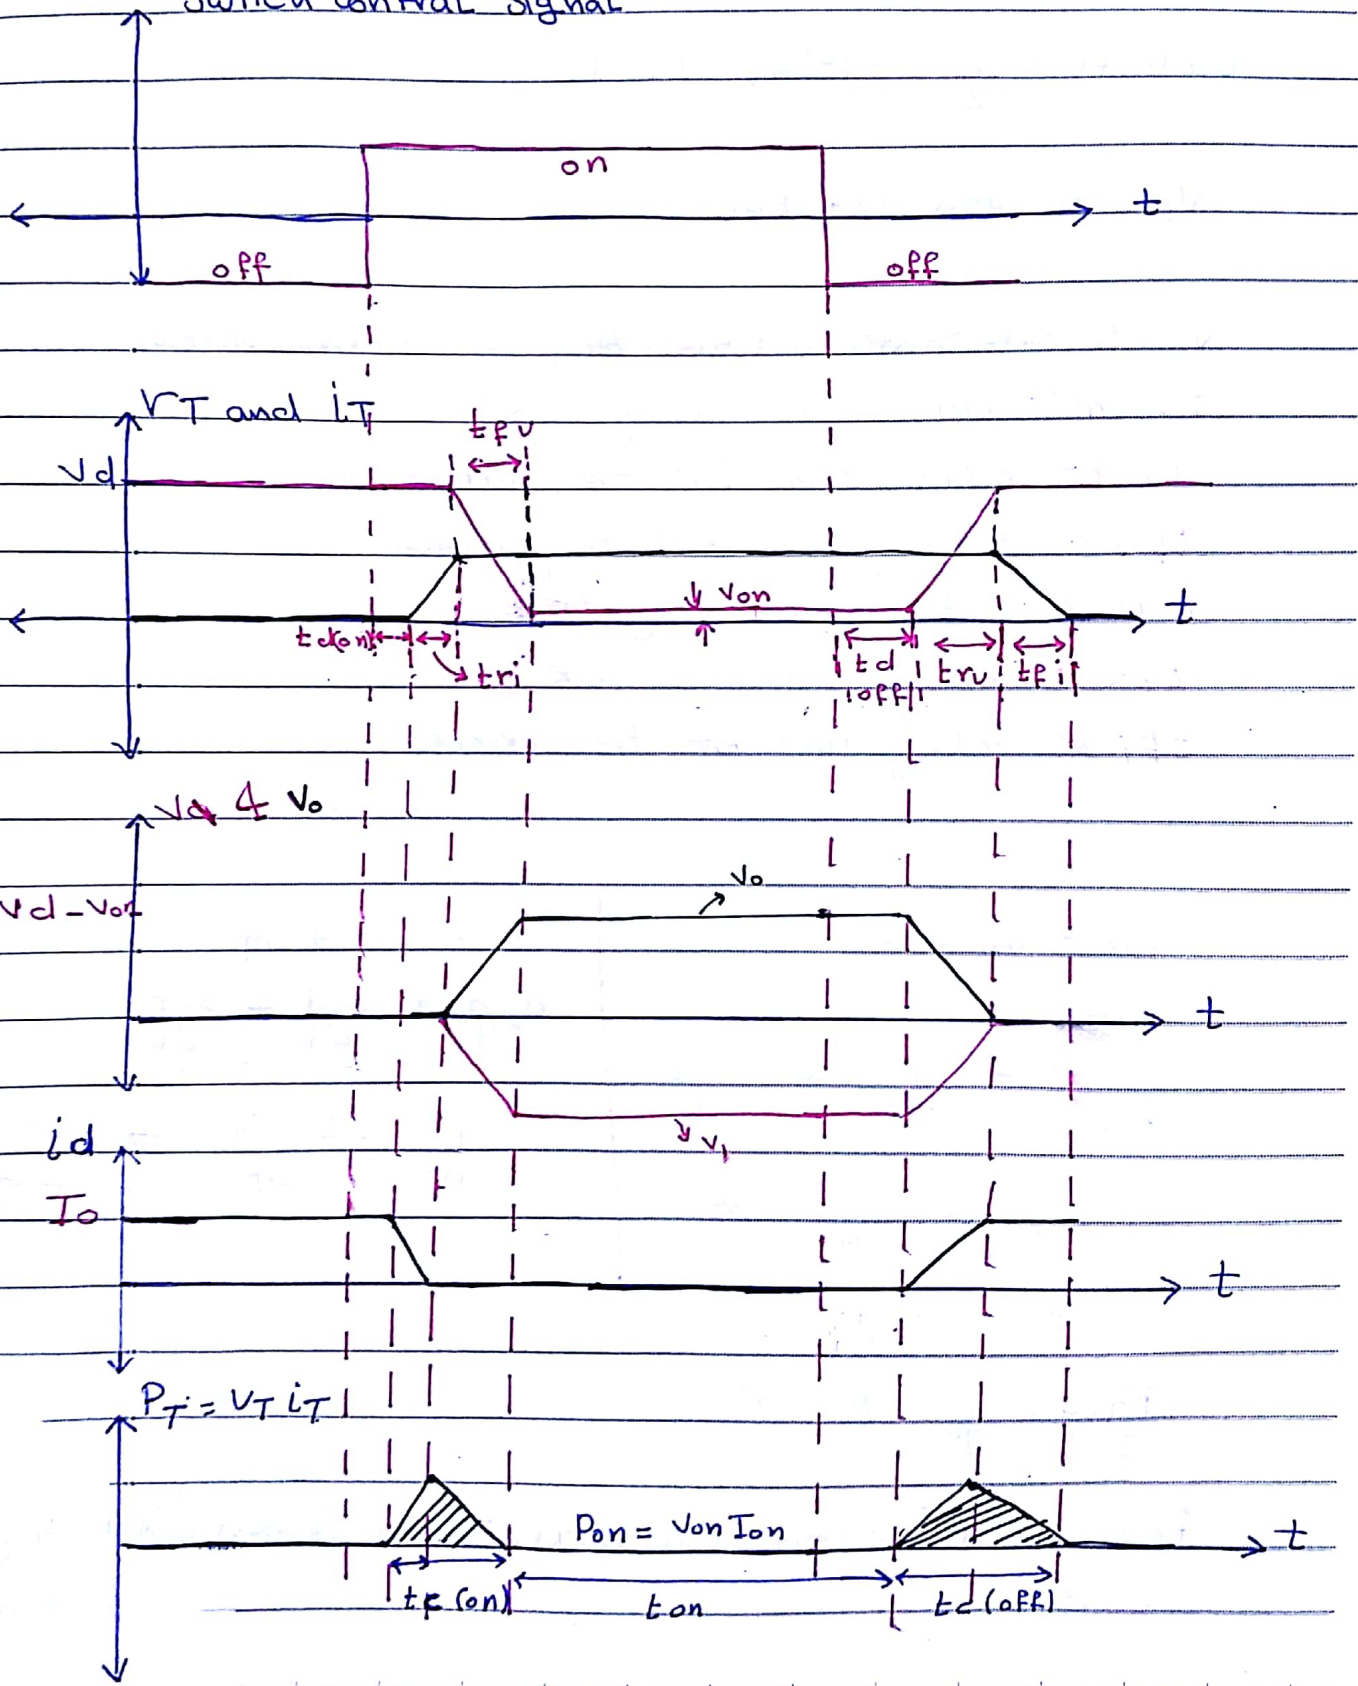 Switch control signal
on
t
off
off
VT and iT
tfv
Vd
Von
t
td(on)
tri
td (off)
trv
tfi
Vd & Vo
Vo
Vd-Von
t
V1
id
Io
t
PT = VT iT
Pon = Von Ion
t
(on)
ton
(off)